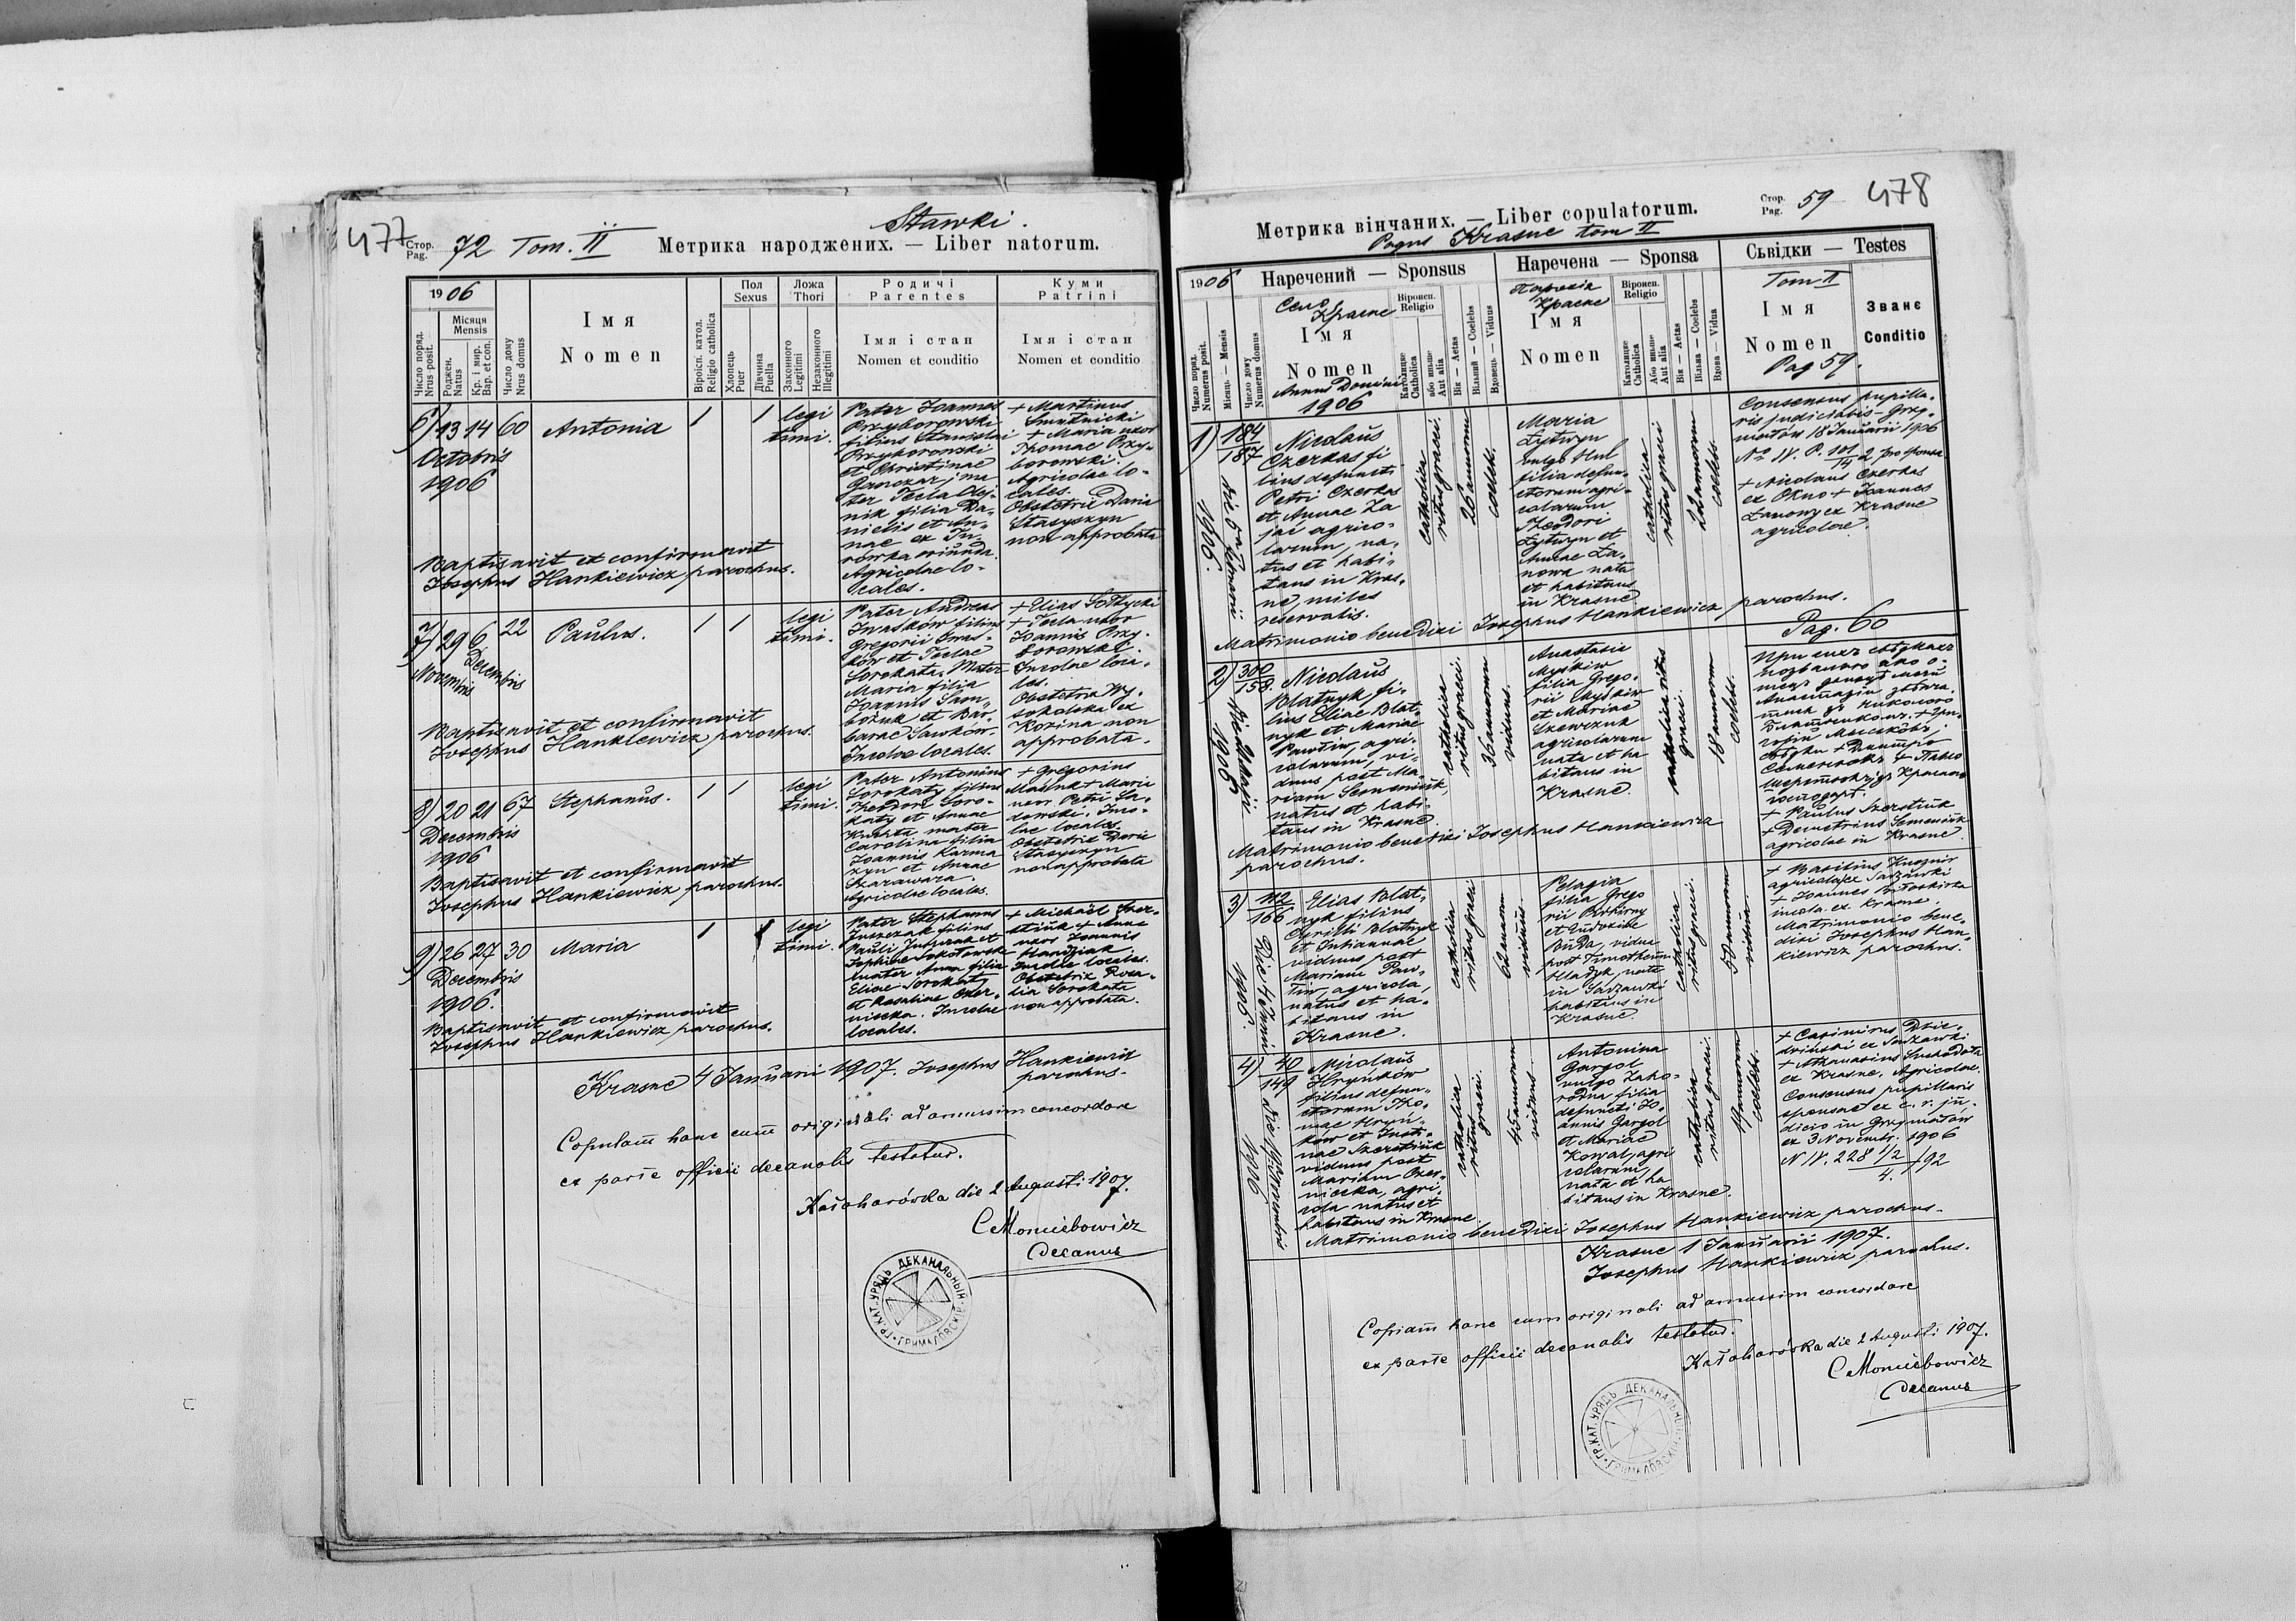 477
Стор.
Pag.
72 Tom. II
Stawki.
Метрика народжених. — Liber natorum.
1906
Число поряд.
Nrus posit.
Місяця
Mensis
Роджен.
Natus
Кр. і мир.
Bap. et con.
Число дому
Nrus domus
Імя
Nomen
Віроісп. катол.
Religio catholica
Пол
Sexus
Хлопець
Puer
Дївчина
Puella
Ложа
Thori
Законного
Legitimi
Незаконного
Illegitimi
Родичі
Parentes
Імя і стан
Nomen et conditio
Куми
Patrini
Імя і стан
Nomen et conditio
6) 13 14 60 Antonia 1 1 legi
timi.
Octobris
1906
Pater Joannes
Przyborowski
filius Stanislai
Przyborowski
et Christinae
Ganczar, ma
ter Tecla Olej-
nik filia Da-
nielis et An-
nae ex
oriunda.
Agricolae lo-
cales.
+ Martinus
Smutnicki
+ Maria uxor
Thomae Przy-
borowski.
Agricolae lo-
cales.
Obstetrix Daria
Stasyszyn
non approbata
Baptisavit et confirmavit
Josephus Hankiewicz parochus.
7) 29 6 22 Paulus. 1 1 legi
timi.
Novembris
Decembris
Pater Andreas
Iwasków filius
Gregorii Iwas-
ków et Teclae
Sorokata. Mater
Maria filia
Joannis Sam-
et Bar-
barae Sawków.
Incolae locales.
+ Elias Sołtycki
+ Tecla uxor
Joannis Przy-
borowski.
Incolae loca-
les.
Obstetrix Wy-
ex
Kozina non
approbata.
Baptisavit et confirmavit
Josephus Hankiewicz parochus.
8) 20 21 67 Stephanus. 1 1 legi
timi.
Decembris
1906
Pater Antonius
Sorokaty filius
Theodori Soro-
katy et Annae
mater
Carolina filia
Joannis Karma
zyn et Annae
Szarawara.
Agricolae locales.
+ Gregorius
+ Maria
uxor Petri Sa-
dowski. Inco-
lae locales.
Obstetrix Daria
Stasyszyn
non approbata
Baptisavit et confirmavit
Josephus Hankiewicz parochus.
9) 26 27 30 Maria 1 1 legi
timi.
Decembris
1906.
Pater Stephanus
Juszczak filius
Pauli Juszczak et
Sophiae Sokołowska
mater Anna filia
Eliae Sorokaty
et Rosaliae Ozer-
niecka. Incolae
locales.
+ Michaël Szer-
stiuk + Anna
uxor Joannis
Incolae locales.
Obstetrix Rosa-
lia Sorokata
non approbata.
Baptisavit et confirmavit
Josephus Hankiewicz parochus.
Krasne 4 Januarii 1907. Josephus Hankiewicz
parochus.
Copulam hanc cum originali ad amussim concordare
ex parte officii decanalis testatur.
Kaľaharówka die 2 Augusti 1907.
Decanus
ГР.КАТ.УРЯДЪ ДЕКАНАЛЬНЫЙ ГРИМАЛОВСКІЙ
478
Стор.
Pag.
59
Метрика вінчаних. — Liber copulatorum.
Pagus Krasne tom II
1906
Число поряд.
Numerus posit.
Місяць — Mensis
Число дому
Numerus domus
Наречений — Sponsus
Село
Красне
Імя
Nomen
Annus Domini
1906
Віроисп.
Religio
Католицке
Catholica
або иньше
Aut alia
Вік — Aetas
Вільний — Coelebs
Вдовець — Viduus
Наречена — Sponsa
Парохія
Красне
Імя
Nomen
Віроисп.
Religio
Католицке
Catholica
Або иньше
Aut alia
Вік — Aetas
Вільна — Coelebs
Вдова — Vidua
Сьвідки — Testes
Tom II
Імя
Nomen
Pag 59.
Званє
Conditio
1) 184
187
1906.
Nicolaus
Czerkas fi
lius defuncti
Petri Czerkas
et Annae Za
jać agrico-
larum, na-
tus et habi-
tans in Kras-
ne, miles
reservalis.
catholica
ritus graeci.
26 annorum
coeleb.
Maria
Łytwyn
vulgo Hul
filia defun-
ctorum agri-
colarum
Theodori
Łytwyn et
Annae Ła-
nowa nata
et habitans
in Krasne
catholica
ritus graeci
22 annorum
coelebs.
Consensus pupilla-
ris judicialis Grzy-
małów 18 Januarii 1906
No IV. P. 101/14 2 pro sponsa
+ Nicolaus Czerkas
ex Okno + Joannes
Łanowy ex Krasne
agricolae.
Matrimonio benedixi Josephus Hankiewicz parochus.
Pag. 60
2) 300
158.
1906
Nicolaus
Blatnyk fi-
lius Eliae Blat-
nyk et Mariae
Pawtiw, agri-
colarum, vi-
duus post Ma-
riam Semeniuk,
natus et habi-
tans in Krasne.
catholica
ritus graeci.
36 annorum
viduus.
Anastasia
Myśkiw
filia Grego-
rii Myśkiw
et Mariae
Szewczuk
agricolarum
nata et ha
bitans in
Krasne.
catholica ritus
graeci.
18 annorum
coelebs.
+ Paulus Szerstiuk
+ Demetrius Semeniuk
agricolae in Krasne
Matrimonio benedixi Josephus Hankiewicz
parochus.
3) 112
166
1906.
Elias Blat-
nyk filius
Cyrilli Blatnyk
et Juliannae
viduus post
Mariam Paw-
tiw, agricola,
natus et ha-
bitans in
Krasne.
catholica
ritus graeci
62 annorum
viduus.
Pelagia
filia Grego
rii
et Eudoxiae
Buda, vidua
post Timotheum
Hładyk, nata
in Sadzawki
habitans in
Krasne.
catholica
ritus graeci.
annorum
vidua.
+ Basilius Kusznir
agricola ex Sadzawki
+ Joannes
incola ex Krasne.
Matrimonio bene-
dixi Josephus Han-
kiewicz parochus.
4) 40
149
1906
Nicolaus
Hryńków
filius defun-
ctorum Tho-
mae Hryń-
ków et Justi-
nae Szerstiuk
viduus post
Mariam Ozer-
niecka, agri-
cola natus et
habitans in Krasne
catholica
ritus
graeci.
45 annorum
viduus.
Antonina
Gargol
vulgo Zaho-
rodna filia
defuncti Jo-
annis Gargol
et Mariae
Kowal, agri
colarum,
nata et ha
bitans in Krasne.
catholica
ritus graeci.
19 annorum
coelebs.
+ Casimirus Dzie-
dziński ex Sadzawki
+ Athanasius Suchodoła
ex Krasne. Agricolae.
Consensus pupillaris
sponsae ex c. r. ju-
dicio in Grzymałów
ex 3 Novembr. 1906
N IV. 228 1/2
4. /92
Matrimonio benedixi Josephus Hankiewicz parochus.
Krasne 1 Januarii 1907.
Josephus Hankiewicz parochus.
Copiam hanc cum originali ad amussim concordare
ex parte officii decanalis testatur.
Kaľaharówka die 2 Augusti 1907.
Decanus
ГР.КАТ.УРЯДЪ ДЕКАНАЛЬНЫЙ ГРИМАЛОВСКІЙ